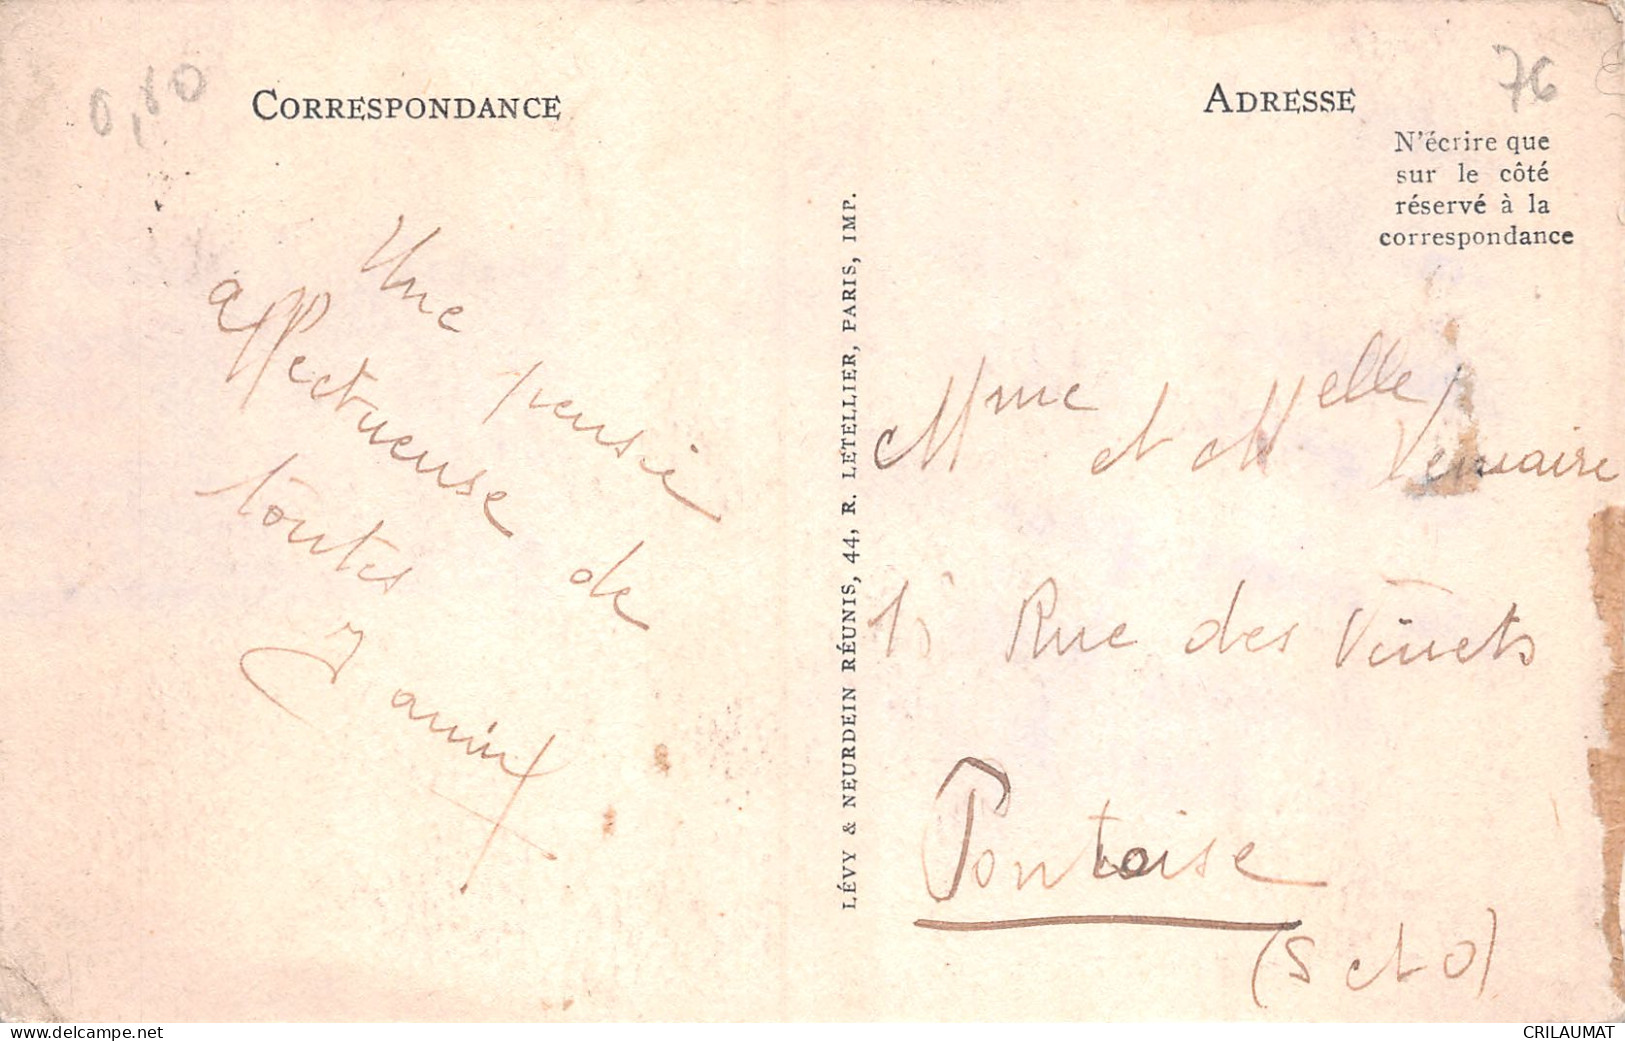 0,80
CORRESPONDANCE
Une pensée
affectueuse de
toutes
Janine
LÉVY & NEURDEIN RÉUNIS, 44, R. LETELLIER, PARIS, IMP.
ADRESSE
76
N'écrire que
sur le côté
réservé à la
correspondance
Mme et Melle
Rue des Vinets
Pontoise
(S et O)
www.delcampe.net
CRILAUMAT